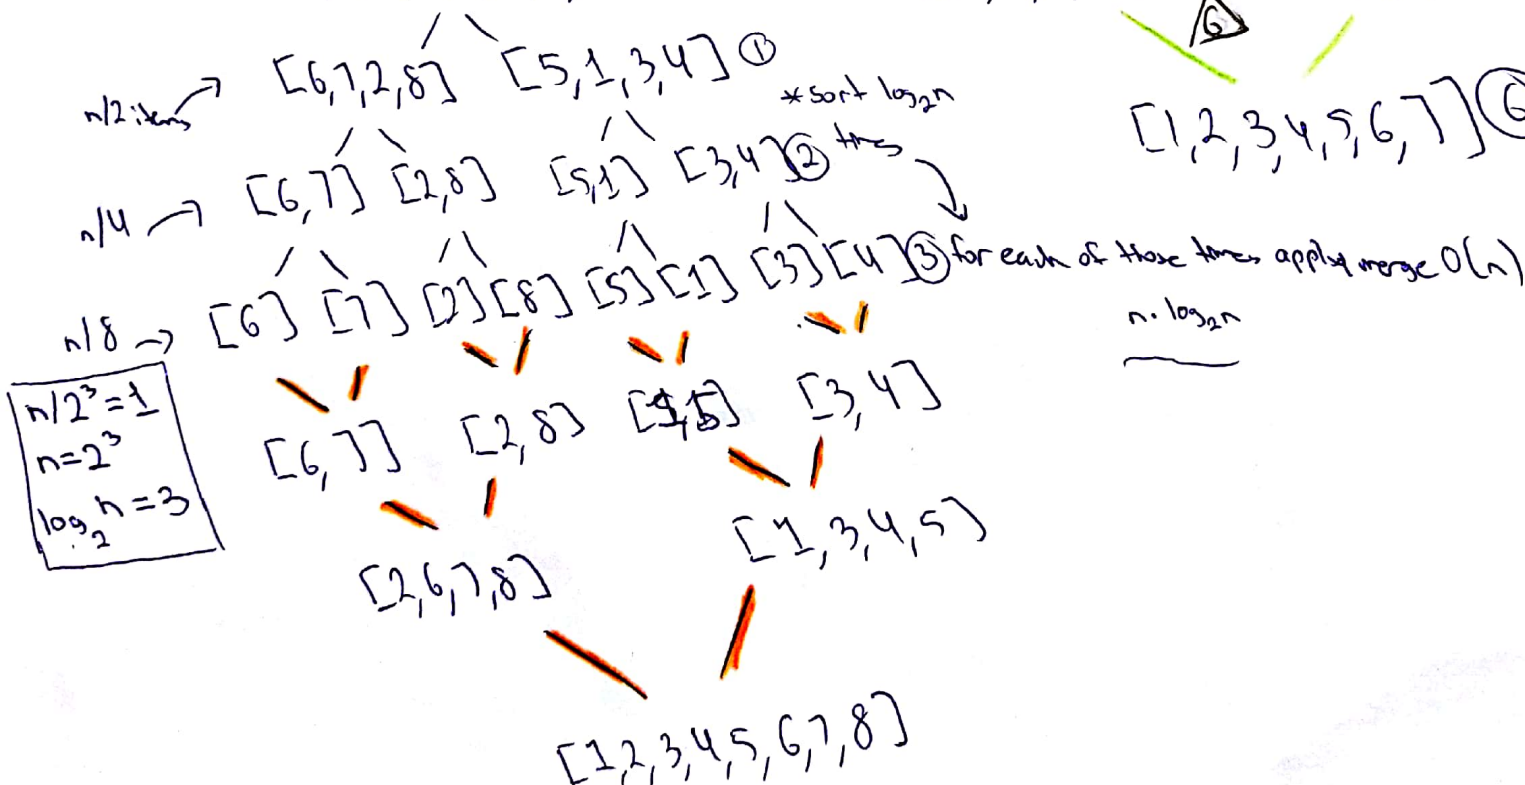 6
n/2 items [6,7,2,8] [5,1,3,4] 1
*sort log₂n
times
[1,2,3,4,5,6,7] 6
n/4 [6,7] [2,8] [5,1] [3,4] 2
n/8 [6] [7] [2] [8] [5] [1] [3] [4] 3 for each of those times apply merge O(n)
n·log₂n
n/2³=1
n=2³
log₂n=3
[6,7] [2,8] [1,5] [3,4]
[2,6,7,8] [1,3,4,5]
[1,2,3,4,5,6,7,8]